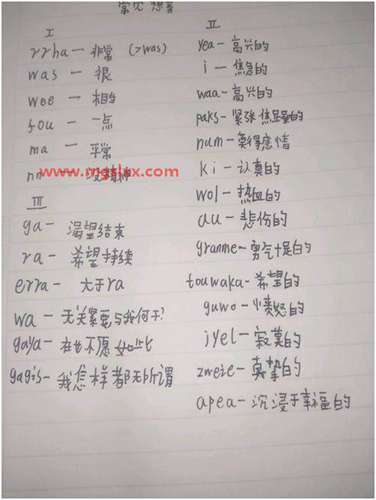 常见想音
I
rrha — 非常 (>was)
was — 很
wee — 相当
fou — 一点
ma — 平常
nn —
III
ga — 渴望结束
ra — 希望持续
erra — 大于ra
wa — 无关紧要与我何干?
gaya — 再也不愿如此
gagis — 我怎样都无所谓
II
yea — 高兴的
i — 焦急的
waa — 高兴的
paks — 紧张焦虑的
num — 莫得感情
ki — 认真的
wol — 热血的
au — 悲伤的
granme — 勇气十足的
touwaka — 希望的
guwo — 愤怒的
jyel — 寂寞的
zweie — 真挚的
apea — 沉浸于幸福的
www.mgtlux.com